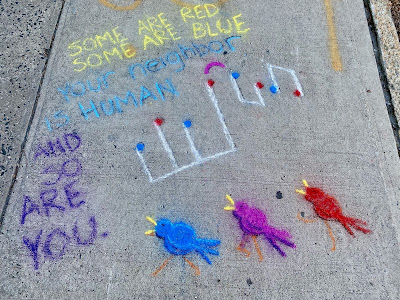 SOME ARE RED
SOME ARE BLUE
YOUR neighbor
is HUMAN
AND
SO
ARE
YOU.